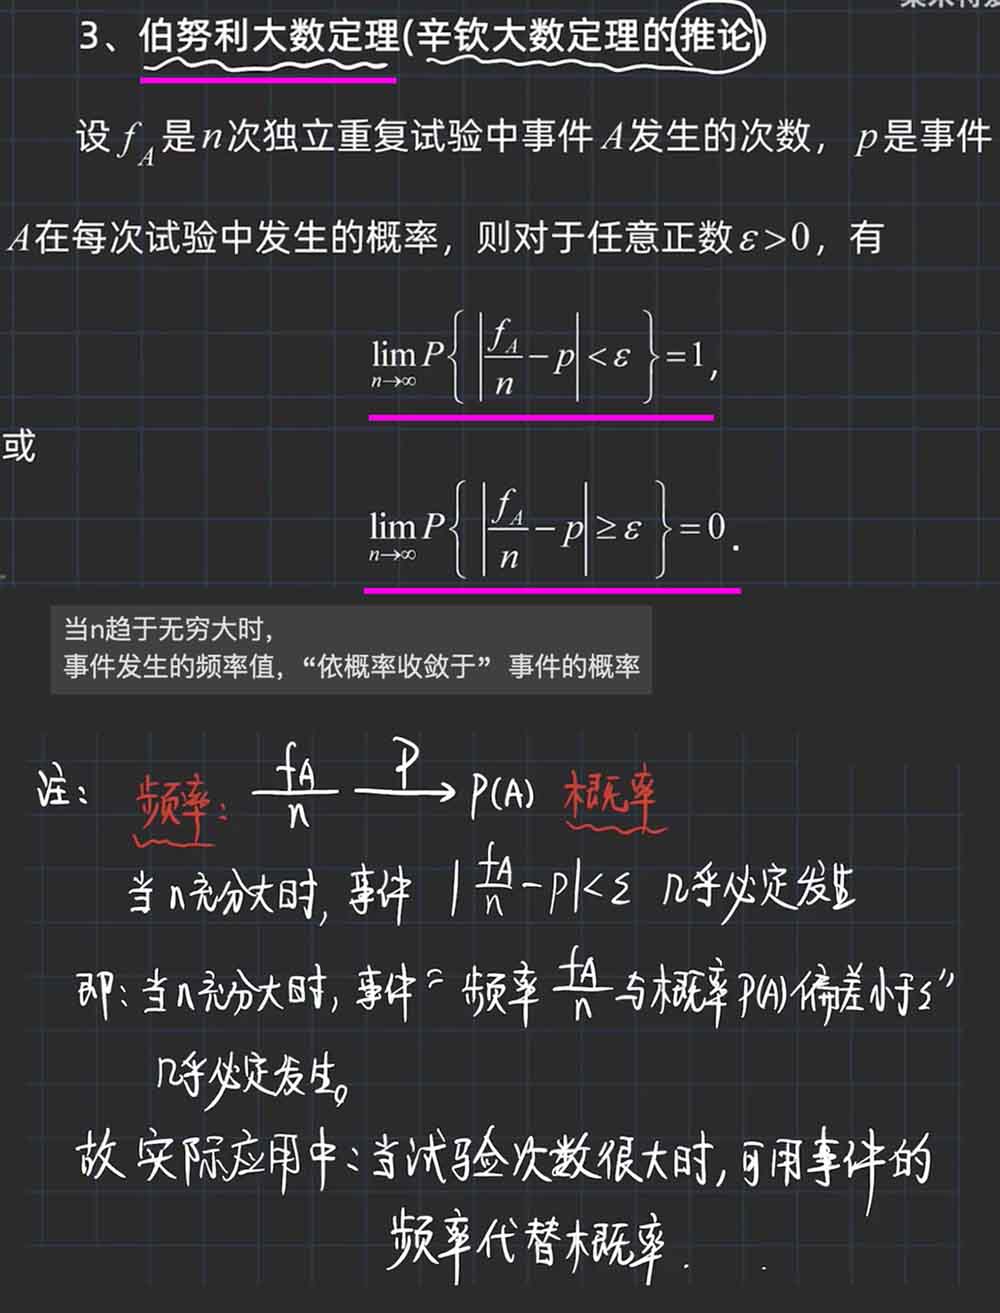 3、伯努利大数定理(辛钦大数定理的推论)
设 f_A 是 n 次独立重复试验中事件 A 发生的次数，p 是事件
A 在每次试验中发生的概率，则对于任意正数 ε>0，有
lim_{n→∞} P{ | f_A/n − p | < ε } = 1,
或
lim_{n→∞} P{ | f_A/n − p | ≥ ε } = 0.
当n趋于无穷大时，
事件发生的频率值，“依概率收敛于” 事件的概率
注： 频率： f_A/n —P→ P(A) 概率
当n充分大时, 事件 | f_A/n − p | < ε 几乎必定发生
即：当n充分大时, 事件“ 频率 f_A/n 与概率 P(A) 偏差小于ε”
几乎必定发生。
故 实际应用中：当试验次数很大时, 可用事件的
频率代替概率.